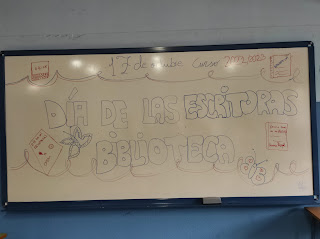 17 de octubre Curso 2022/2023
DÍA DE LAS ESCRITORAS
BIBLIOTECA